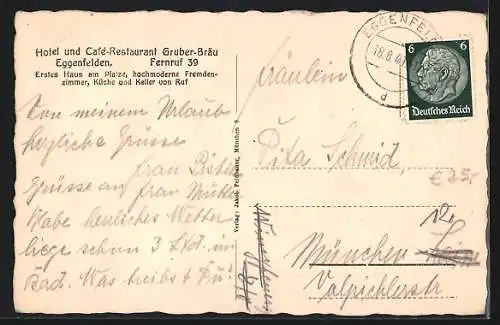 Hotel und Café-Restaurant Gruber-Bräu
Eggenfelden. Fernruf 39
Erstes Haus am Platze, hochmoderne Fremden-
zimmer, Küche und Keller von Ruf
Von meinem Urlaub
herzliche Grüsse
Frau
Grüsse an Frau
Habe herrliches Wetter
liege schon 3 Std. im
Bad. Was treibst Du?
EGGENFELD
18.8.41
d
6 6
Deutsches Reich
Fräulein
Pita Schmid,
€ 25,-
München
Valpichlerstr